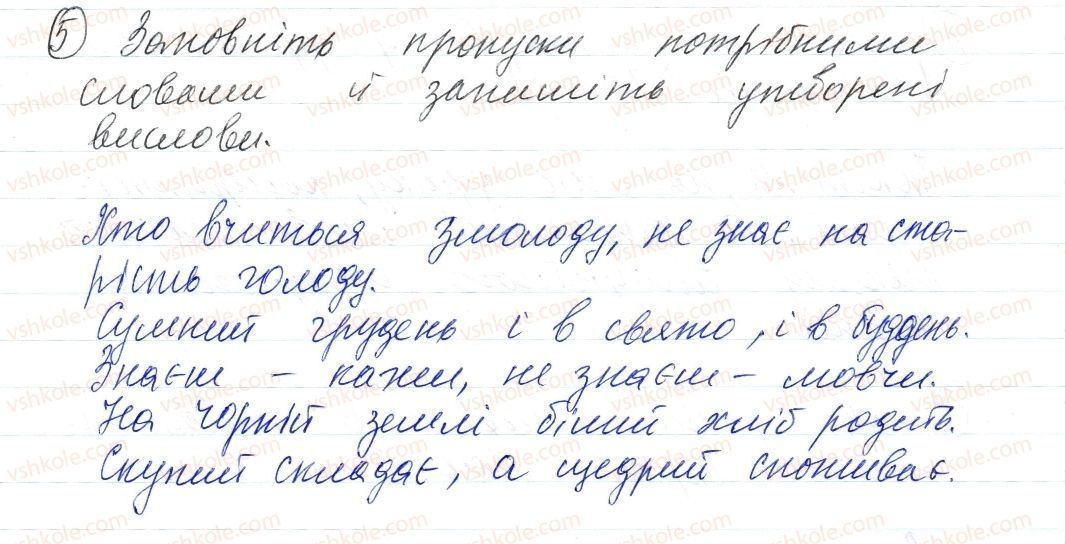 5 Заповніть пропуски потрібними
словами й запишіть утворені
вислови.
Хто вчиться змолоду, не знає на ста-
рість голоду.
Сумний грудень і в свято, і в будень.
Знаєш - кажи, не знаєш - мовчи.
На чорній землі білий хліб родить.
Скупий складає, а щедрий споживає.